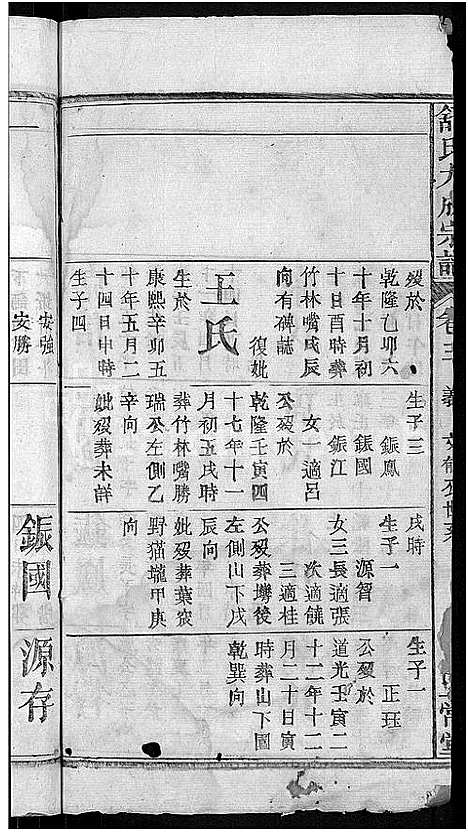 舒氏大成宗譜
卷三
義
歿於
乾隆乙卯六
十年十月初
十日酉時葬
竹林嘴戌辰
向有碑誌
復妣
王氏
生於
康熙辛卯五
十年五月二
十四日申時
生子四
生子三
鋠鳳
鋠國
鋠江
女一適呂
公歿於
乾隆壬寅四
十七年十一
月初五戌時
葬竹林嘴勝
瑞公左側乙
辛向
妣歿葬未詳
戌時
生子一
源智
女三長適張
次適饒
三適桂
公歿葬塆後
左側山下戌
辰向
妣歿葬葉家
野猫壠甲庚
向
鋠國
生子一
正珏
公歿於
道光壬寅二
十二年十二
月二十日寅
時葬山下園
乾巽向
源存
安強
安勝